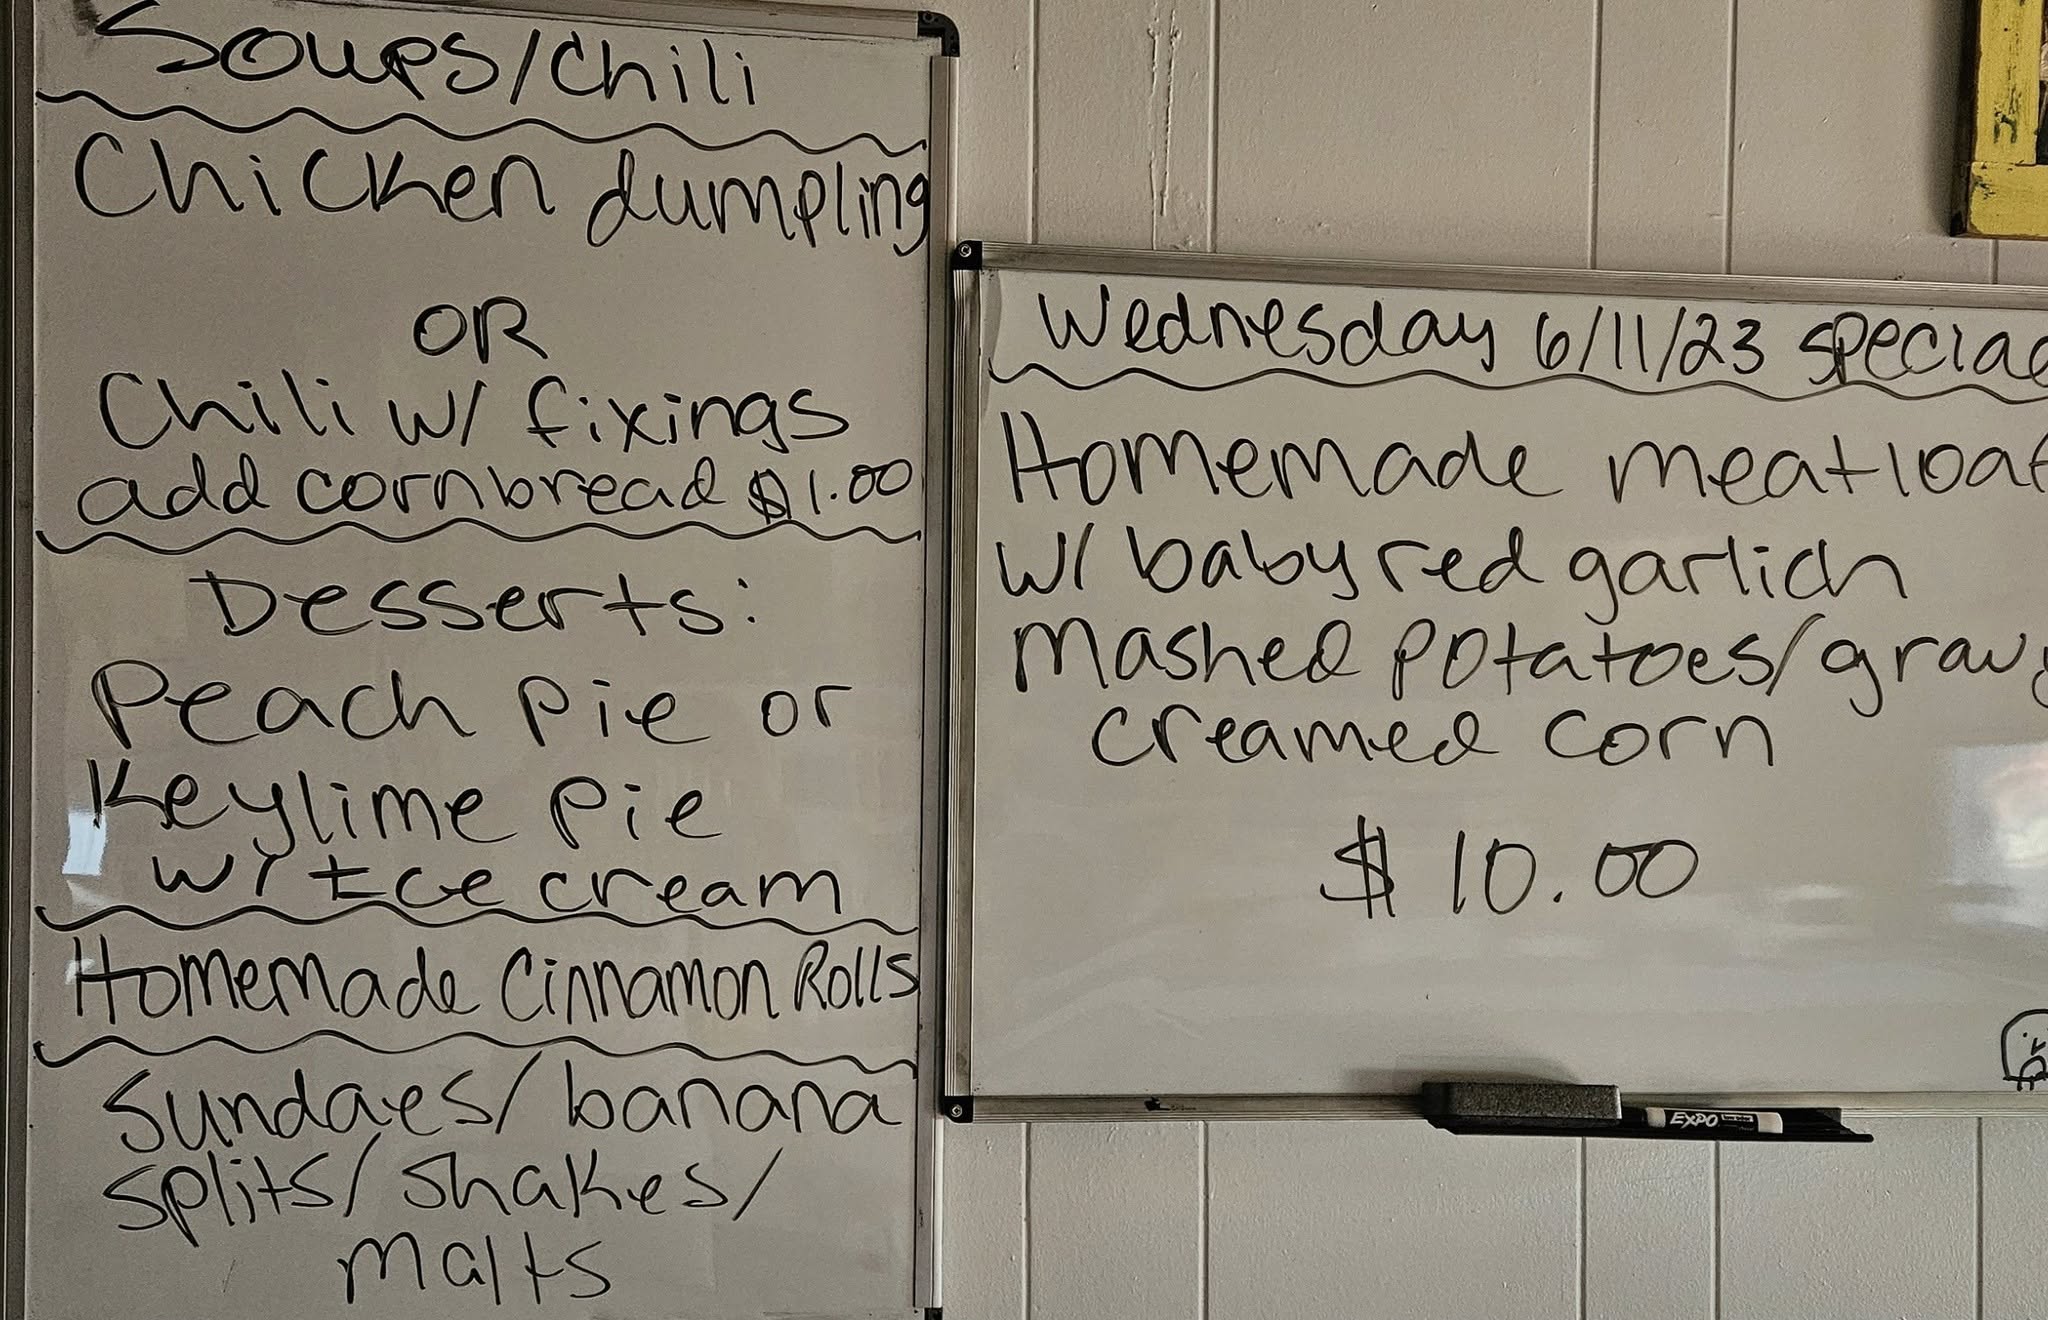 Soups/Chili
Chicken dumpling
OR
Chili w/ fixings
add cornbread $1.00
Desserts:
Peach Pie or
Keylime Pie
w/ Ice cream
Homemade Cinnamon Rolls
Sundaes/banana
splits/shakes/
malts
Wednesday 6/11/23 special
Homemade meatloaf
w/ baby red garlich
Mashed potatoes/gravy
creamed corn
$10.00
EXPO